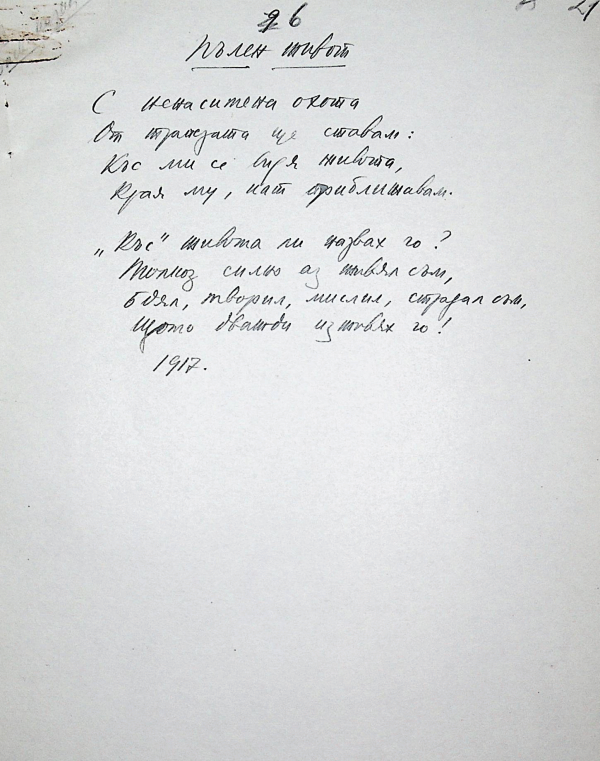 26
21
Пълен живот
С ненаситена охота
От трапезата ще ставам:
Къс ми се видя живота,
Края му, кат приближавам.
„Къс“ живота ли назвах го?
Толкоз силно аз живял съм,
Бдял, творил, мислил, страдал съм,
Щото дважди изживях го!
1917.